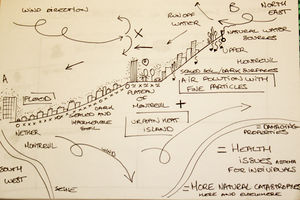 WIND DIRECTION
RUN OFF
WATER
B
NORTH
EAST
X
NATURAL WATER
SOURCES
UPPER
MONTREUIL
SEALED SOIL/DARK SURFACES
AIR POLLUTION WITH
FINE PARTICLES
A
FLOOD
PLATEAU
OF
MONTREUIL
+
DARK
SEALED AND
SOIL
NETHER
MONTREUIL
URBAN HEAT
ISLAND
WIND
SOUTH
WEST
SEINE
= DAMAGING
PROPERTIES
= HEALTH
ISSUES ASTHMA
FOR INDIVIDUALS
= MORE NATURAL CATASTROPHES
HERE AND ELSEWHERE